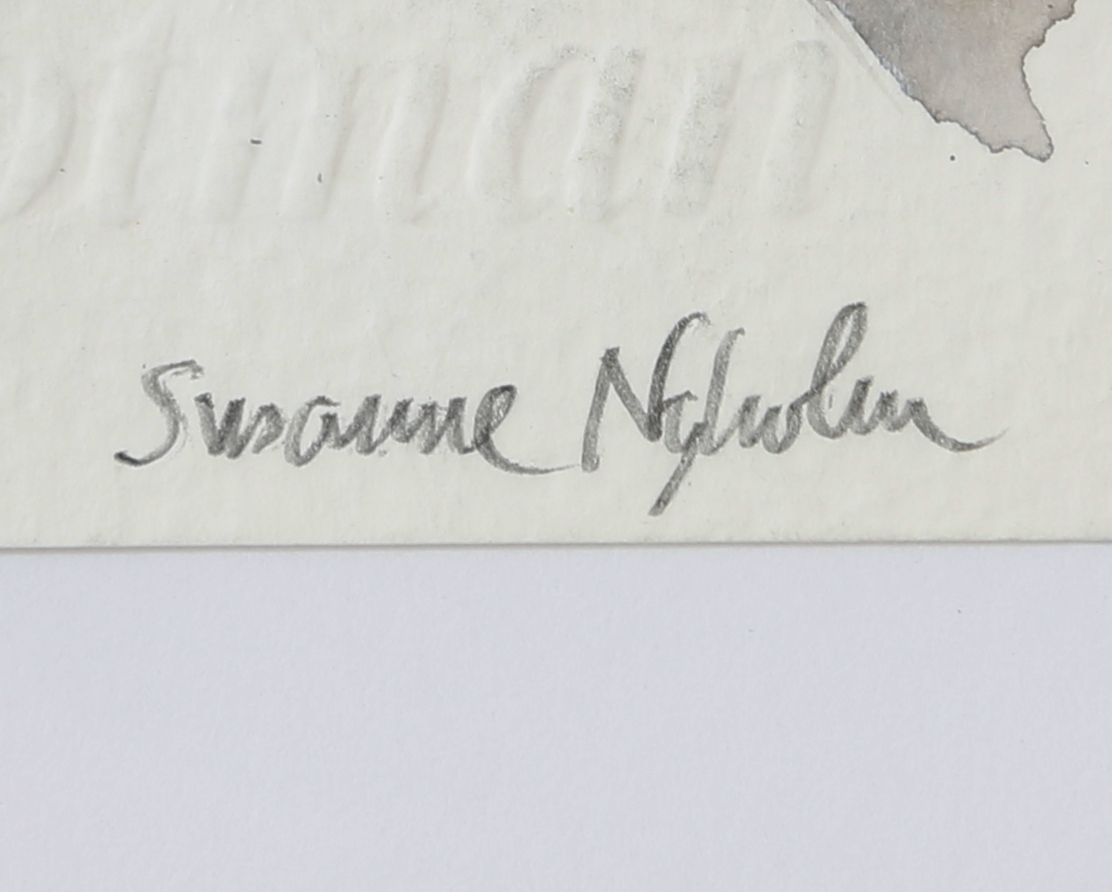 Susanne Nyholm